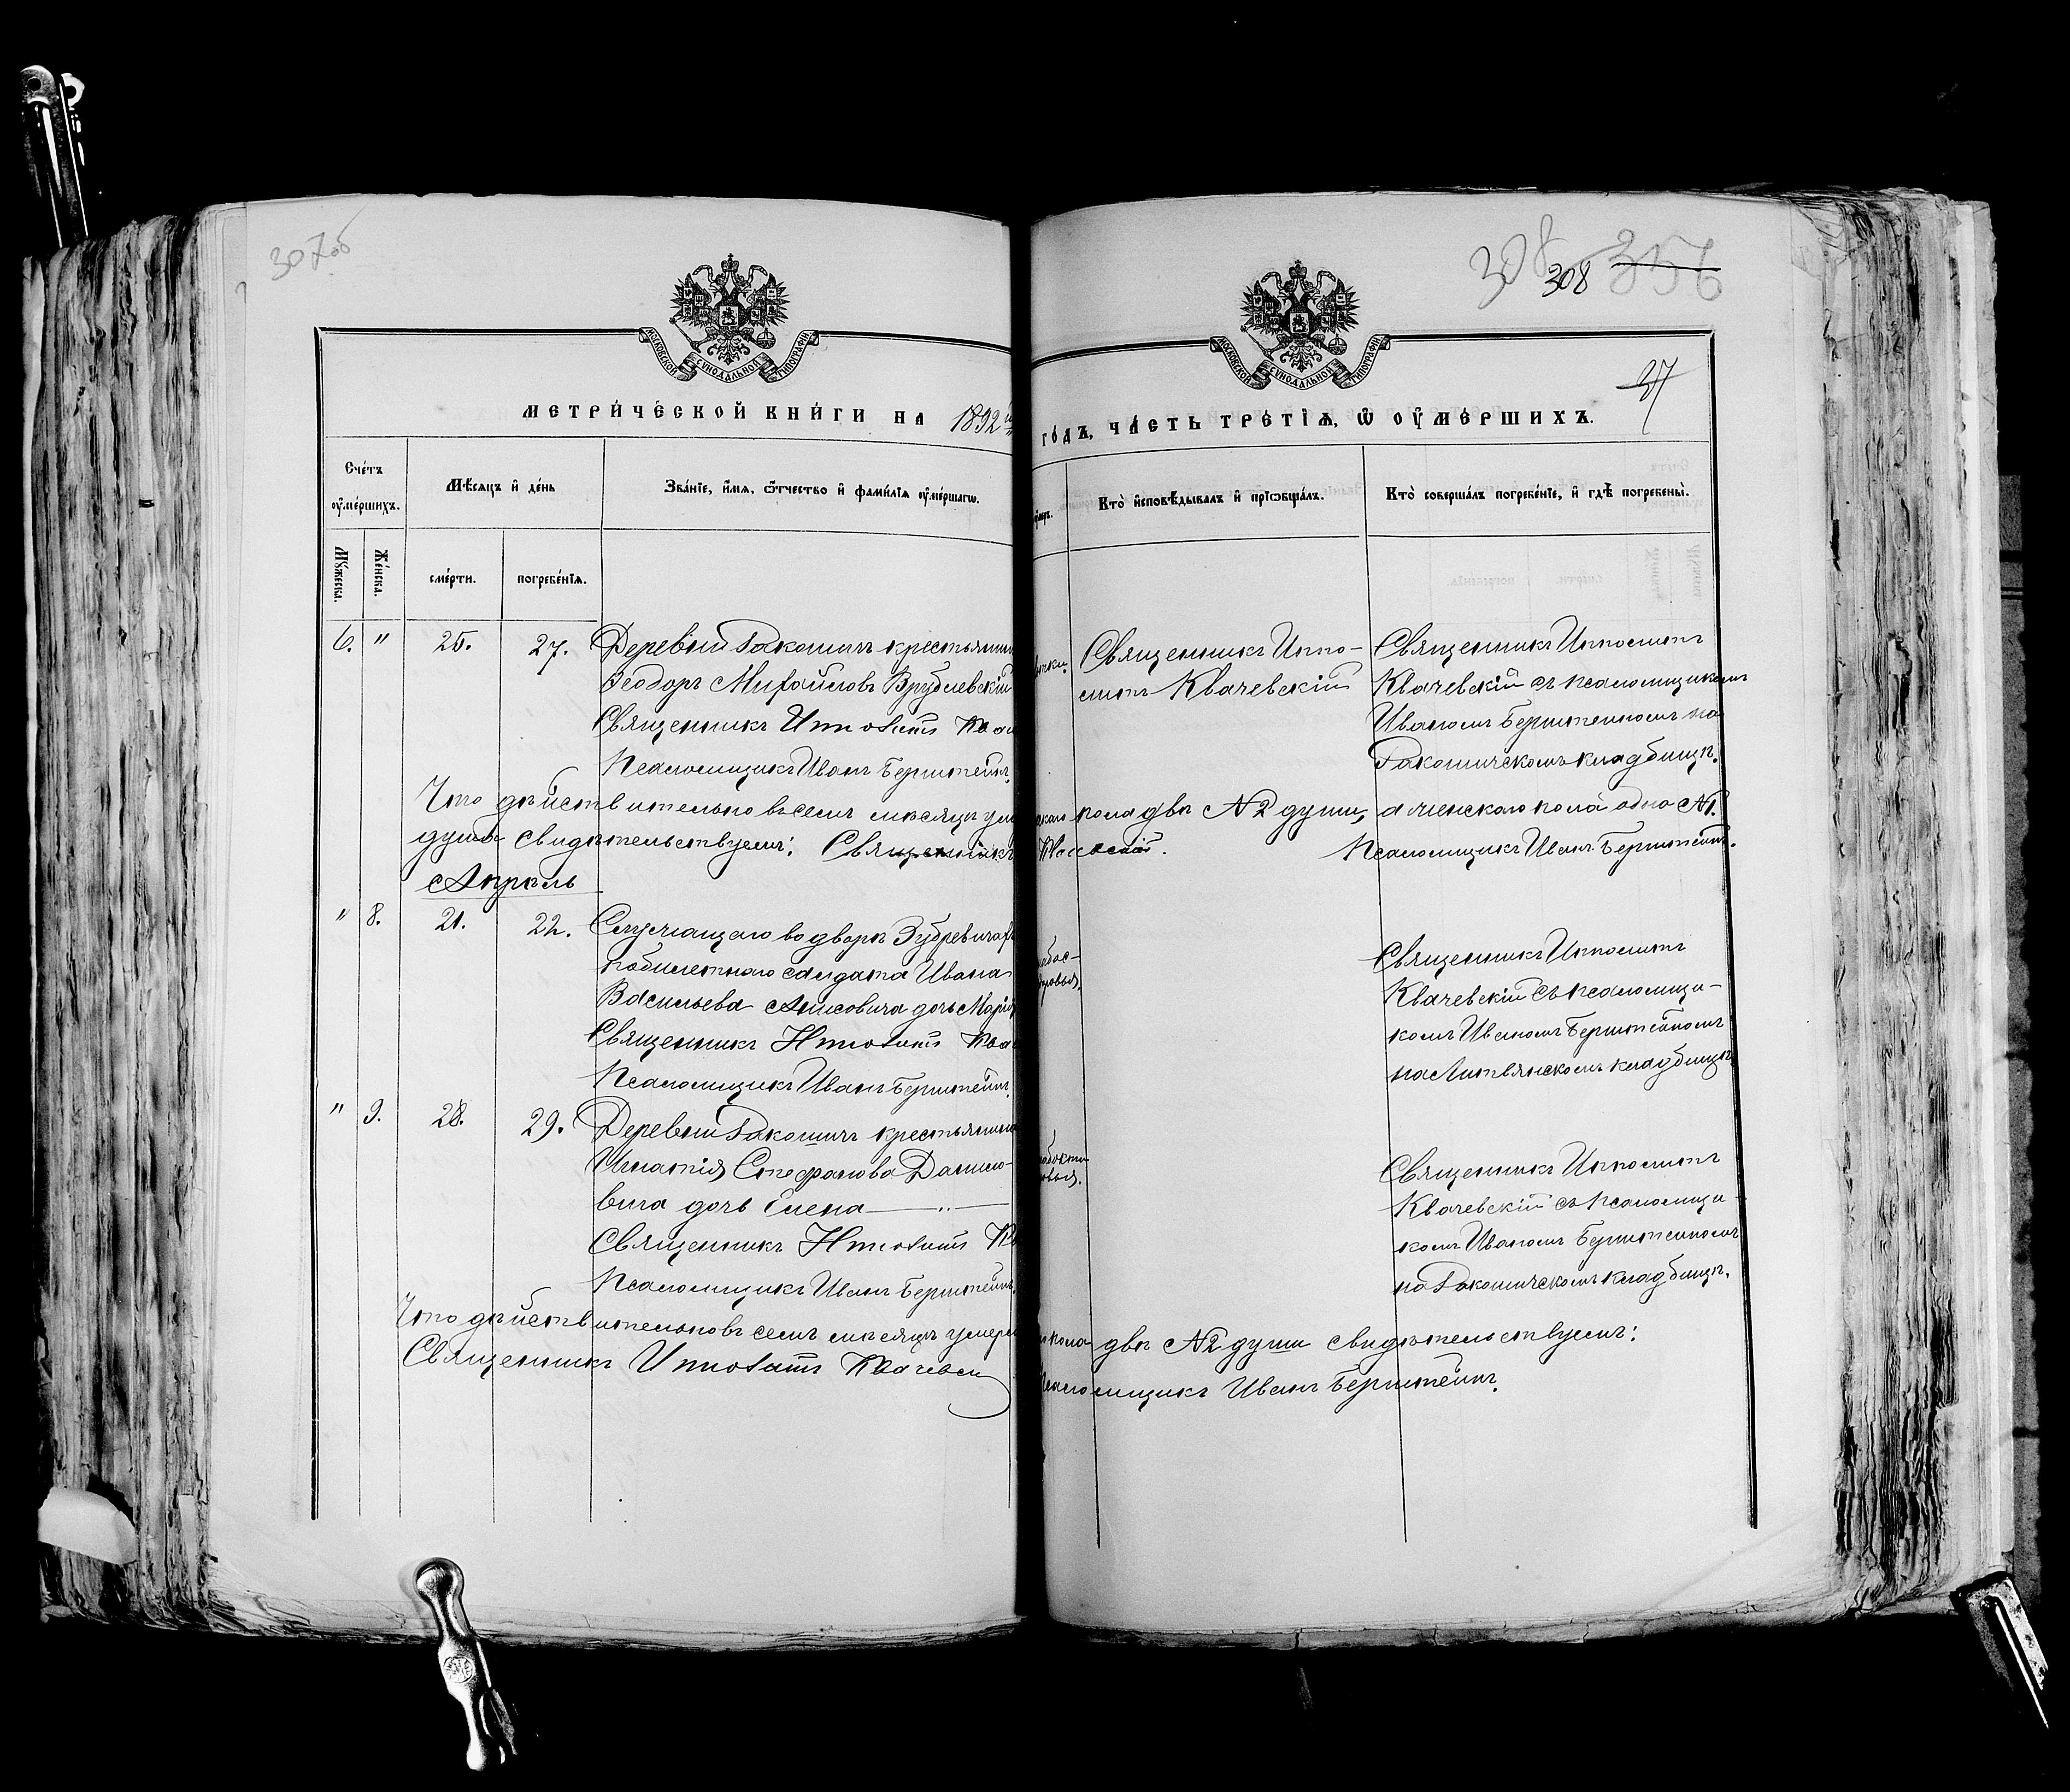 307об
308
308
356
37
МОСКОВСКОЙ СѴНОДАЛЬНОЙ ТИПОГРАФІИ
МОСКОВСКОЙ СѴНОДАЛЬНОЙ ТИПОГРАФІИ
МЕТРИ́ЧЕСКОЙ КНИ́ГИ НА 1892
ГО́ДЪ, ЧА́СТЬ ТРЕ́ТІѦ, Ѡ҆ ОУ҆МЕ́РШИХЪ.
Сче́тъ оу҆ме́ршихъ.
Мѣ́сяцъ и҆ де́нь
Зва́ніе, и҆́мя, ѻ҆́тчество и҆ фами́лія оу҆ме́ршагѡ.
Кто̀ и҆сповѣ́дывалъ и҆ прїѡбща́лъ.
Кто̀ соверша́лъ погребе́ніе, и҆ гдѣ̀ погребены̀.
Мꙋ́жеска.
Же́нска.
сме́рти.
погребе́нїѧ.
6. " 25. 27. Деревни Ракошичъ крестьянин
Ѳеодоръ Михайловъ Врублевскій
Священникъ Ипполитъ
Псаломщикъ Иванъ Бернштейнъ.
Священникъ Иппо-
литъ Квачевскій
Священникъ Ипполитъ
Квачевскій съ псаломщикомъ
Иваномъ Бернштейномъ на
Ракошичскомъ кладбищѣ.
Что дѣйствительно въ семъ мѣсяцѣ
пола двѣ №2 души, а женскаго пола одна №1.
душа свидѣтельствуемъ: Священникъ
Псаломщикъ Иванъ Бернштейнъ.
Апрѣль
" 8. 21. 22. Служащаго во дворѣ Зубревичахъ
побилетнаго солдата Ивана
Васильева Анисовича дочь Марія
Священникъ Ипполитъ
Псаломщикъ Иванъ Бернштейнъ.
Священникъ Ипполитъ
Квачевскій съ псаломщи-
комъ Иваномъ Бернштейномъ
на Литвянскомъ кладбищѣ
" 9. 28. 29. Деревни Ракошичъ крестьянина
Игнатія Стефанова Данило-
вича дочь Елена
Священникъ Ипполитъ
Псаломщикъ Иванъ Бернштейнъ.
Священникъ Ипполитъ
Квачевскій съ псаломщи-
комъ Иваномъ Бернштейномъ
на Ракошичскомъ кладбищѣ.
Что дѣйствительно въ семъ мѣсяцѣ
пола двѣ №2 души свидѣтельствуемъ:
Священникъ Ипполитъ Квачевскій
Псаломщикъ Иванъ Бернштейнъ.